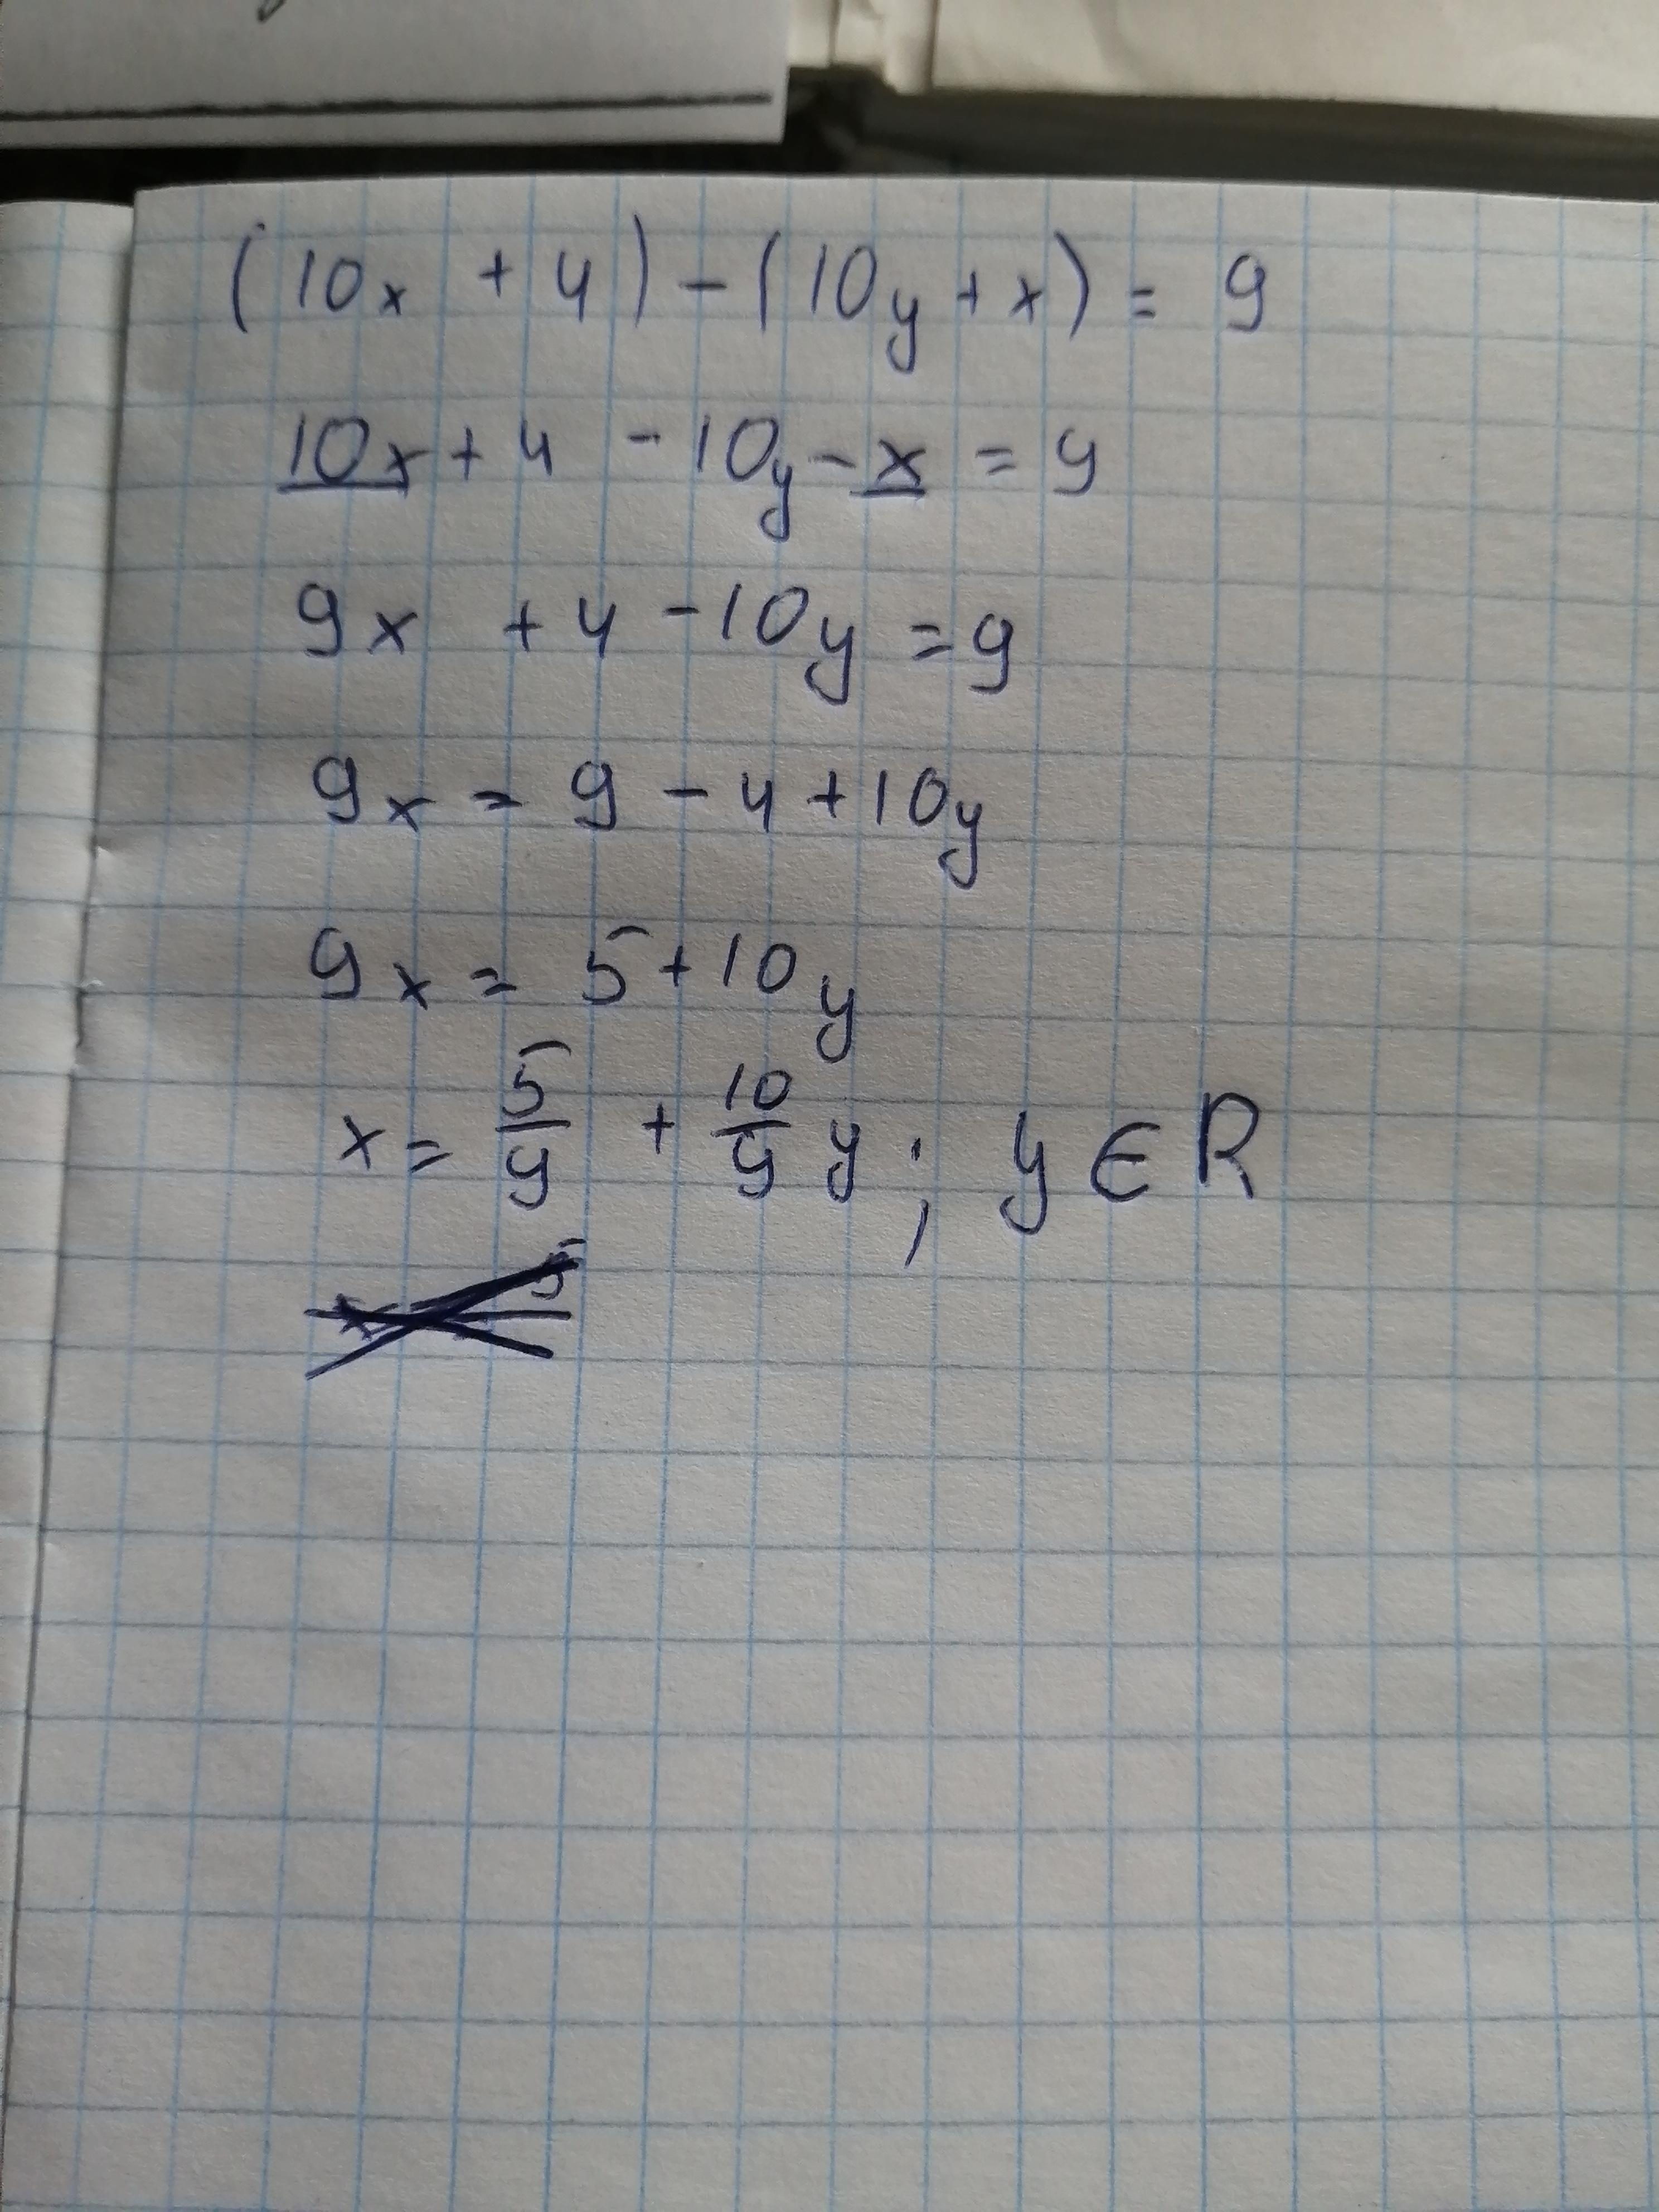 (10x + 4) - (10y + x) = 9
10x + 4 - 10y - x = 9
9x + 4 - 10y = 9
9x = 9 - 4 + 10y
9x = 5 + 10y
x = 5/9 + 10/9 y ; y ∈ R